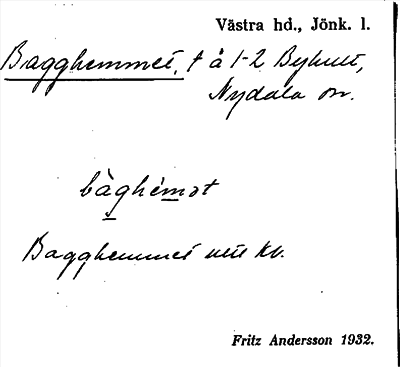 Västra hd., Jönk. l.
Bagghemmet, t å 1-2 Byhult,
Nydala sn.
bàghèmət
Bagghemmet kv.
Fritz Andersson 1932.